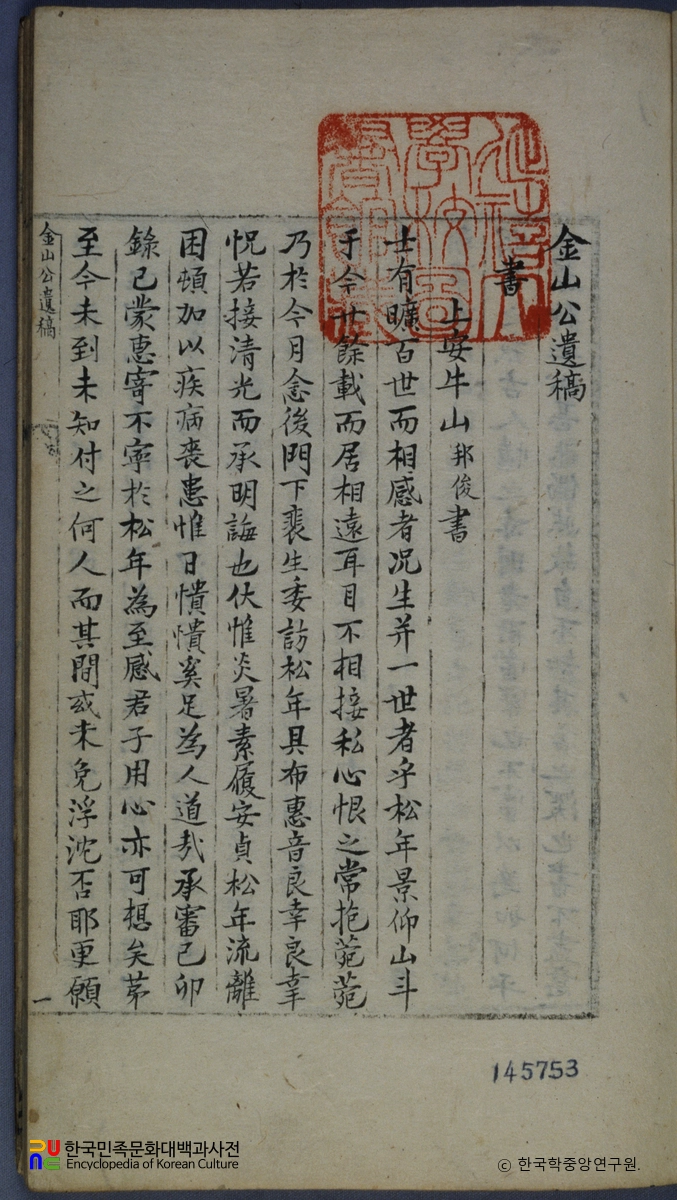 金山公遺稿
書
上安牛山邦俊書
士有曠百世而相感者况生并一世者乎松年景仰山斗
于今廿餘載而居相遠耳目不相接私心恨之常抱菀菀
乃於今月念後門下裴生委訪松年具布惠音良幸良幸
怳若接清光而承明誨也伏惟炎暑素履安貞松年流離
困頓加以疾病喪患惟日憒憒奚足為人道㢤承審己卯
錄已蒙惠寄不寧於松年為至感君子用心亦可想矣苐
至今未到未知付之何人而其間或未免浮沈否耶更願
金山公遺稿
一
145753
한국민족문화대백과사전
Encyclopedia of Korean Culture
ⓒ 한국학중앙연구원.